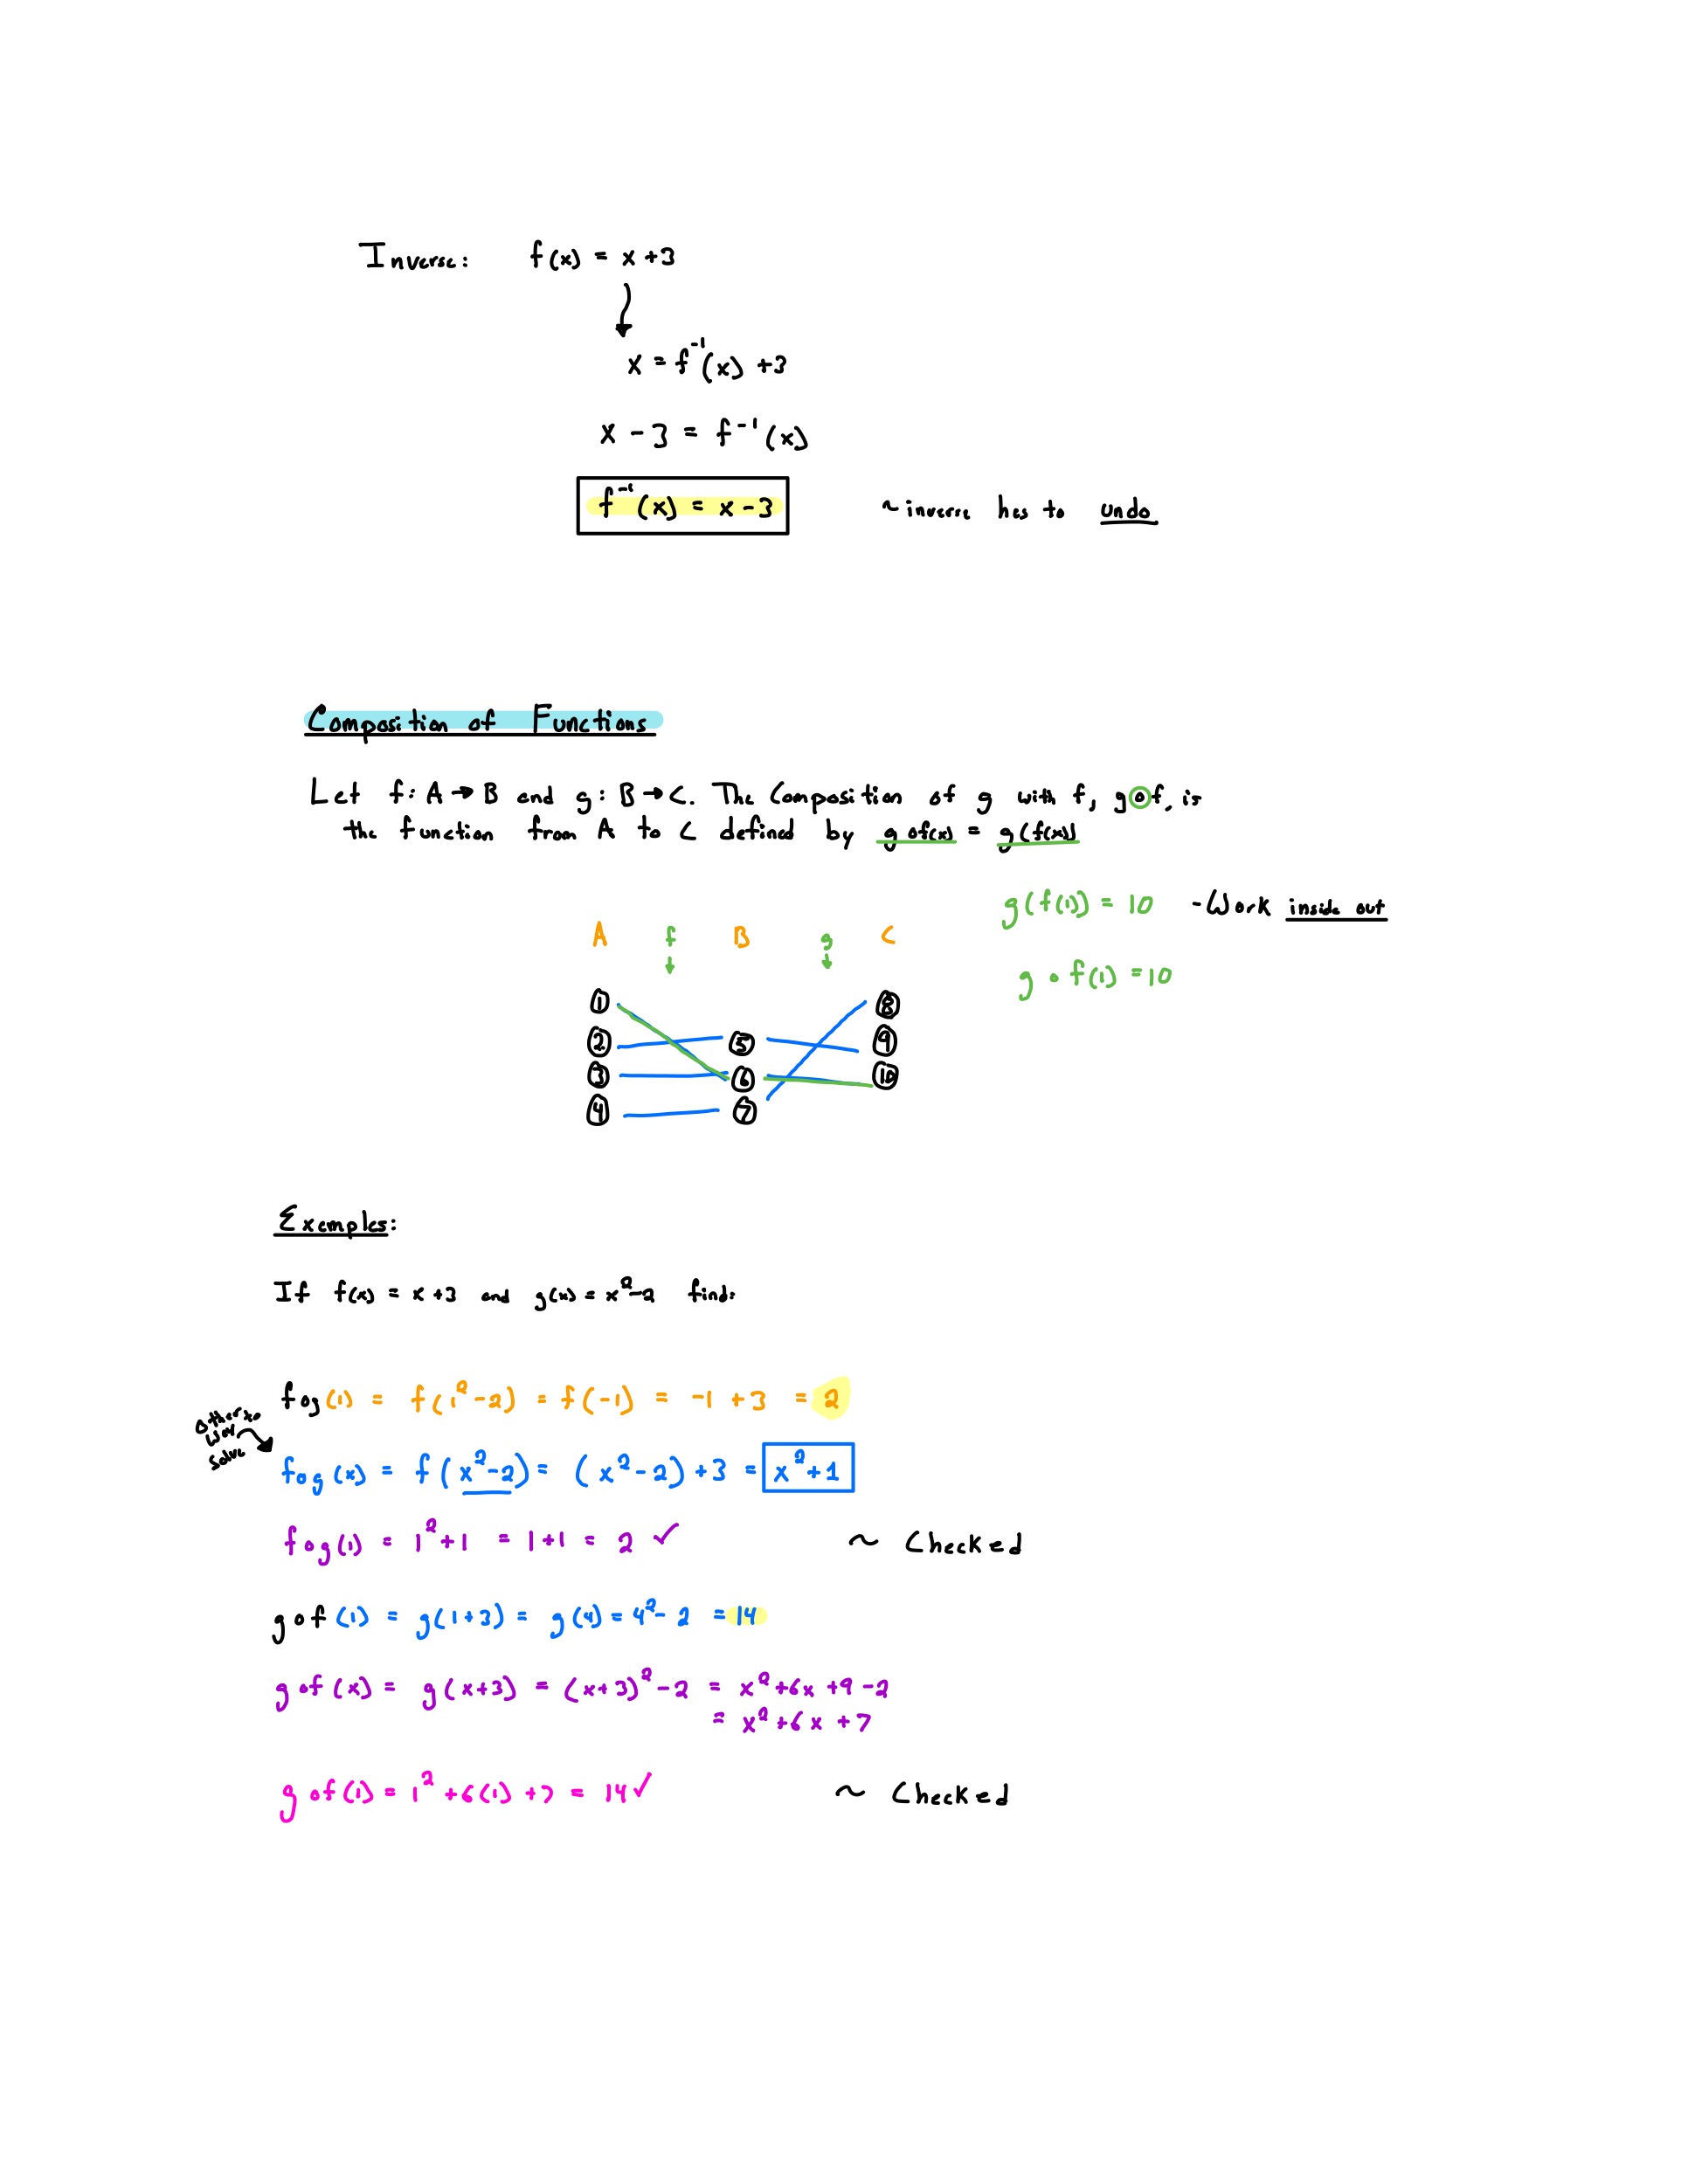 Inverse: f(x) = x + 3
x = f⁻¹(x) + 3
x - 3 = f⁻¹(x)
f⁻¹(x) = x - 3 ~ inverse has to undo
Composition of Functions
Let f: A → B and g: B → C. The Composition of g with f, g∘f, is
the function from A to C defined by g∘f(x) = g(f(x))
g(f(1)) = 10 - Work inside out
A f B g C
g∘f(1) = 10
1 8
2 5 9
3 6 10
4 7
Examples:
If f(x) = x + 3 and g(x) = x² - 2 find:
f∘g(1) = f(1² - 2) = f(-1) = -1 + 3 = 2
Other to
way
solve
f∘g(x) = f(x² - 2) = (x² - 2) + 3 = x² + 1
f∘g(1) = 1² + 1 = 1 + 1 = 2 ✓ ~ Checked
g∘f(1) = g(1 + 3) = g(4) = 4² - 2 = 14
g∘f(x) = g(x + 3) = (x + 3)² - 2 = x² + 6x + 9 - 2
= x² + 6x + 7
g∘f(1) = 1² + 6(1) + 7 = 14 ✓ ~ Checked